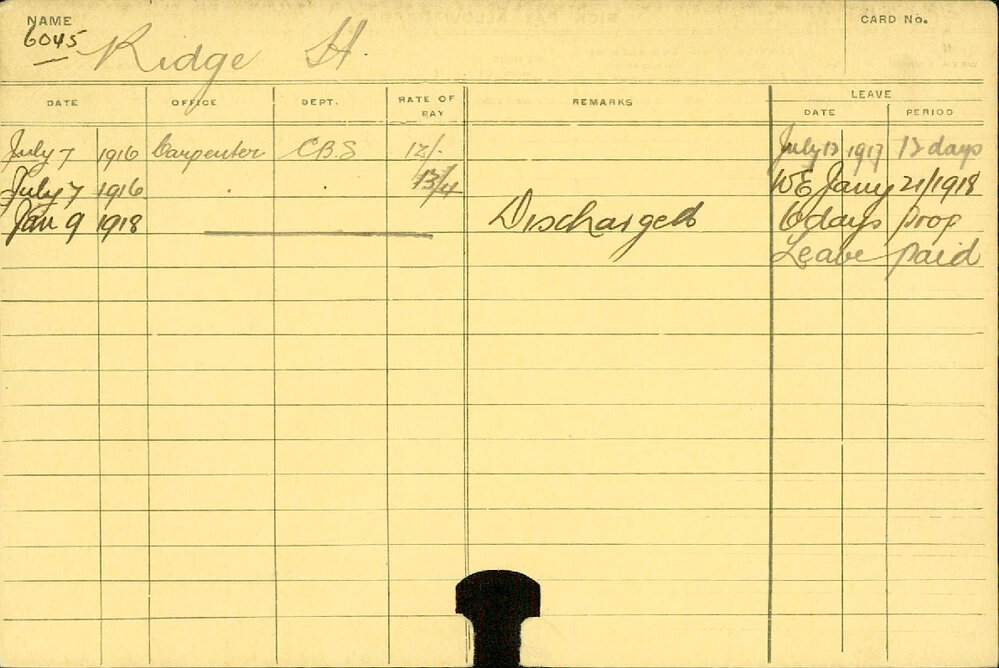 NAME
CARD No.
6045 Ridge H.
DATE OFFICE DEPT. RATE OF PAY REMARKS LEAVE
DATE PERIOD
July 7 1916 Carpenter C.B.S 12/- July 13 1917 12 days
July 7 1916 . . 13/4 WE Jany 21/1918
Jan 9 1918 Discharged 6 days prop
Leave paid